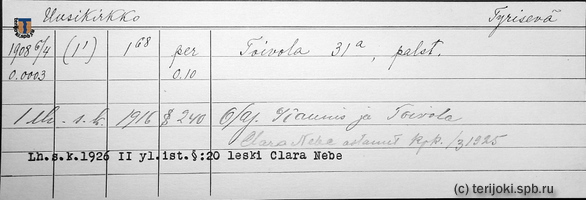 Uusikirkko Tyrisevä
1908 6/4 (1') 1 68 per Toivola 31a, palst.
0.0003 0.10
1 lh. s.k. 1916 § 240 O/Y. Kaunis ja Toivola
Clara Nebe ostanut Kpk. /31925
Lh.s.k.1926 II yl.ist.§:20 leski Clara Nebe
(c) terijoki.spb.ru